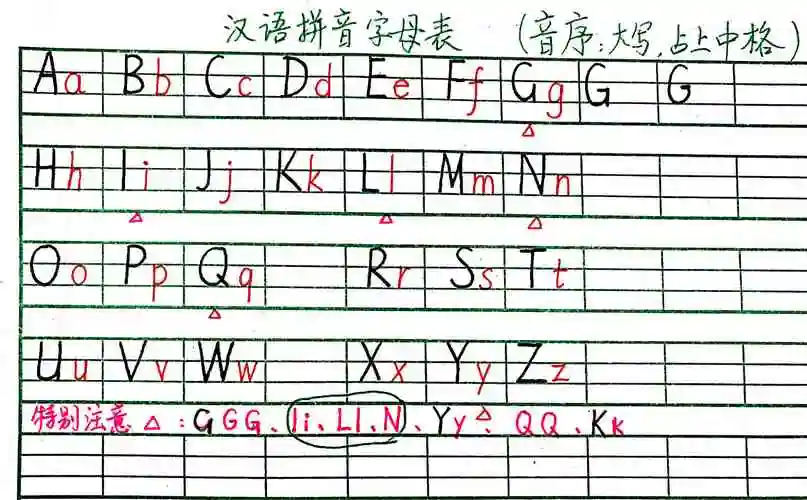 汉语拼音字母表 (音序:大写,占上中格)
Aa Bb Cc Dd Ee Ff Gg G G
Hh Ii Jj Kk Ll Mm Nn
Oo Pp Qq Rr Ss Tt
Uu Vv Ww Xx Yy Zz
特别注意 △ : G G G、Ii、Ll、N、Yy△、Q Q、Kk